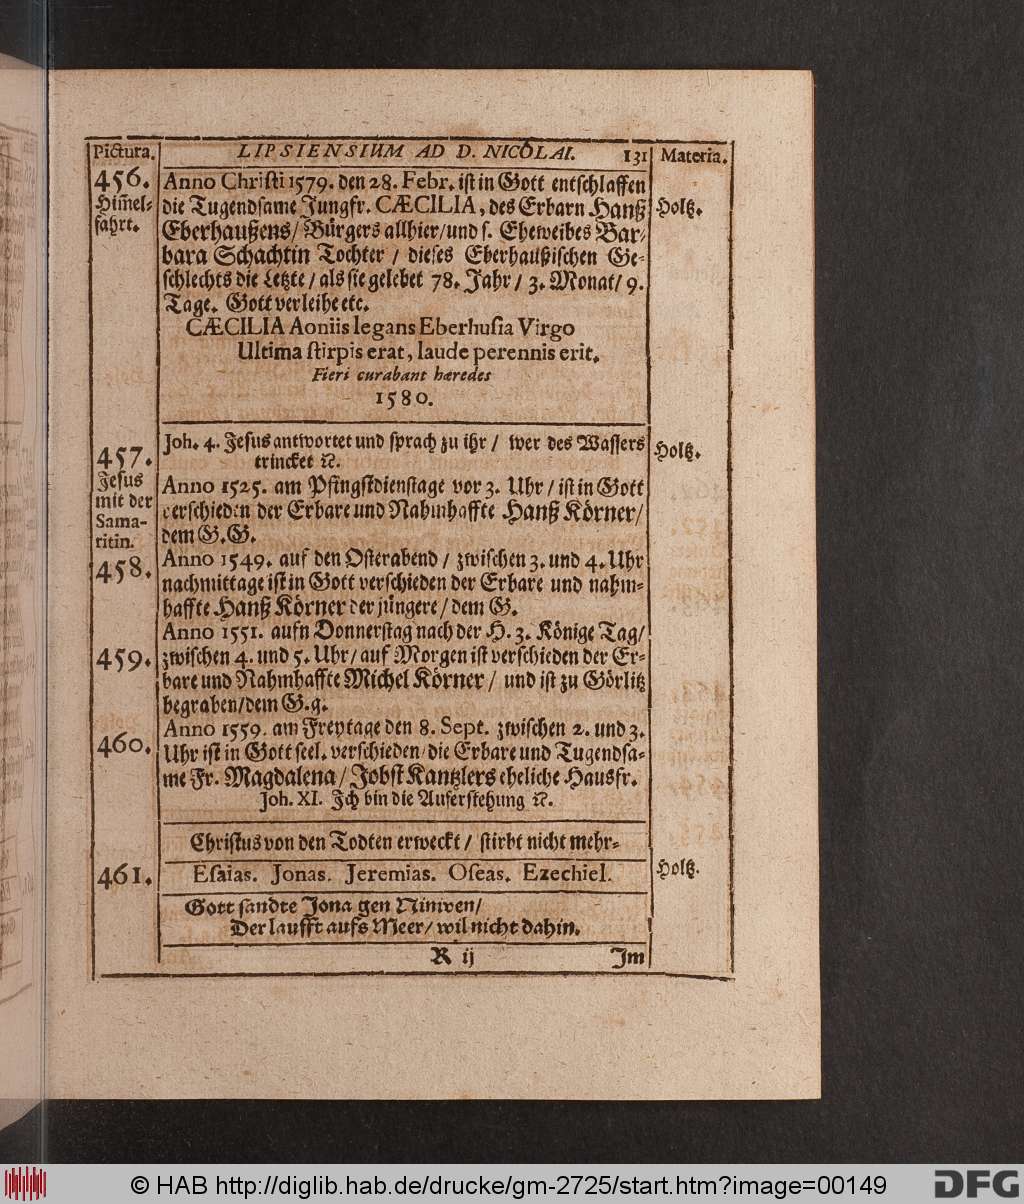 Pictura. LIPSIENSIUM AD D. NICOLAI. 131 Materia.
456. Anno Christi 1579. den 28. Febr. ist in Gott entschlaffen
Him̃el- die Tugendsame Jungfr. CÆCILIA, des Erbarn Hanß Holtz.
fahrt. Eberhaußens/ Bürgers allhier/ und s. Eheweibes Bar-
bara Schachtin Tochter / dieses Eberhaußischen Ge-
schlechts die Letzte / als sie gelebet 78. Jahr / 3. Monat/ 9.
Tage. Gott verleihe etc.
CÆCILIA Aoniis legans Eberhusia Virgo
Ultima stirpis erat, laude perennis erit.
Fieri curabant hæredes
1580.
Joh. 4. Jesus antwortet und sprach zu ihr / wer des Wassers
457. trincket ꝛc. Holtz.
Jesus Anno 1525. am Pfingstdienstage vor 3. Uhr / ist in Gott
mit der verschieden der Erbare und Nahmhaffte Hanß Körner/
Sama- dem G.G.
ritin.
458. Anno 1549. auf den Osterabend / zwischen 3. und 4. Uhr
nachmittage ist in Gott verschieden der Erbare und nahm-
haffte Hanß Körner der jüngere / dem G.
Anno 1551. aufn Donnerstag nach der H. 3. Könige Tag/
459. zwischen 4. und 5. Uhr/ auf Morgen ist verschieden der Er-
bare und Nahmhaffte Michel Körner / und ist zu Görlitz
begraben/dem G.g.
Anno 1559. am Freytage den 8. Sept. zwischen 2. und 3.
460. Uhr ist in Gott seel. verschieden/ die Erbare und Tugendsa-
me Fr. Magdalena/ Jobst Kantzlers eheliche Hausfr.
Joh. XI. Jch bin die Auferstehung ꝛc.
Christus von den Todten erweckt / stirbt nicht mehr-
461. Esaias. Jonas. Jeremias. Oseas. Ezechiel. Holtz.
Gott sandte Jona gen Niniven/
Der laufft aufs Meer/ wil nicht dahin.
R ij Jm
© HAB http://diglib.hab.de/drucke/gm-2725/start.htm?image=00149
DFG